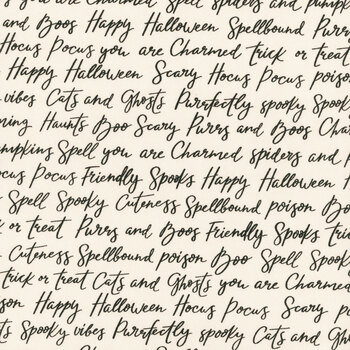 you are Charmed Spell spiders and pumpk
and Boos Happy Halloween Spellbound Purrs
Hocus Pocus you are Charmed trick or treat
Happy Halloween Scary Hocus Pocus poison
vibes Cats and Ghosts Purrfectly spooky Spook
ning Haunts Boo Scary Purrs and Boos Ch
umpkins Spell you are Charmed spiders and p
cus Pocus Friendly Spooks Happy Halloween
Spell Spooky Cuteness Spellbound poison Bo
k or treat Purrs and Boos Friendly Spooks Tri
Cuteness Spellbound poison Boo Spell Spooky
trick or treat Cats and Ghosts you are Charmed
son Happy Halloween Hocus Pocus Scary p
s Spooky vibes Purrfectly spooky Cats and G